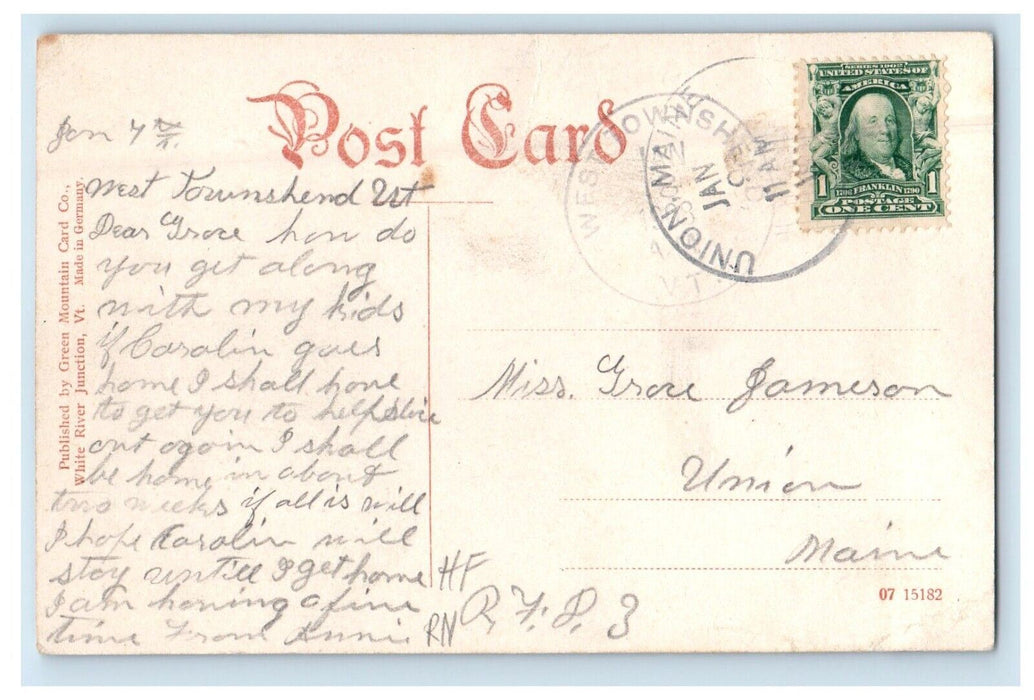 Post Card
Jan 7th
West Townshend Vt
Dear Grace how do
you get along
with my kids
if Carolin goes
home I shall have
to get you to help
out again I shall
be home in about
two weeks if all is will
I hope Carolin will
stay untill I get home
I am having a fine
time From Annie
HF
RN
Published by Green Mountain Card Co.,
White River Junction, Vt. Made in Germany.
WEST TOWNSHEND
VT.
UNION, MAINE
JAN
9
11 AM
SERIES 1902
UNITED STATES OF
AMERICA
1706 FRANKLIN 1790
1 POSTAGE 1
ONE CENT
Miss. Grace Jameson
Union
Maine
R. F. D. 3
07 15182